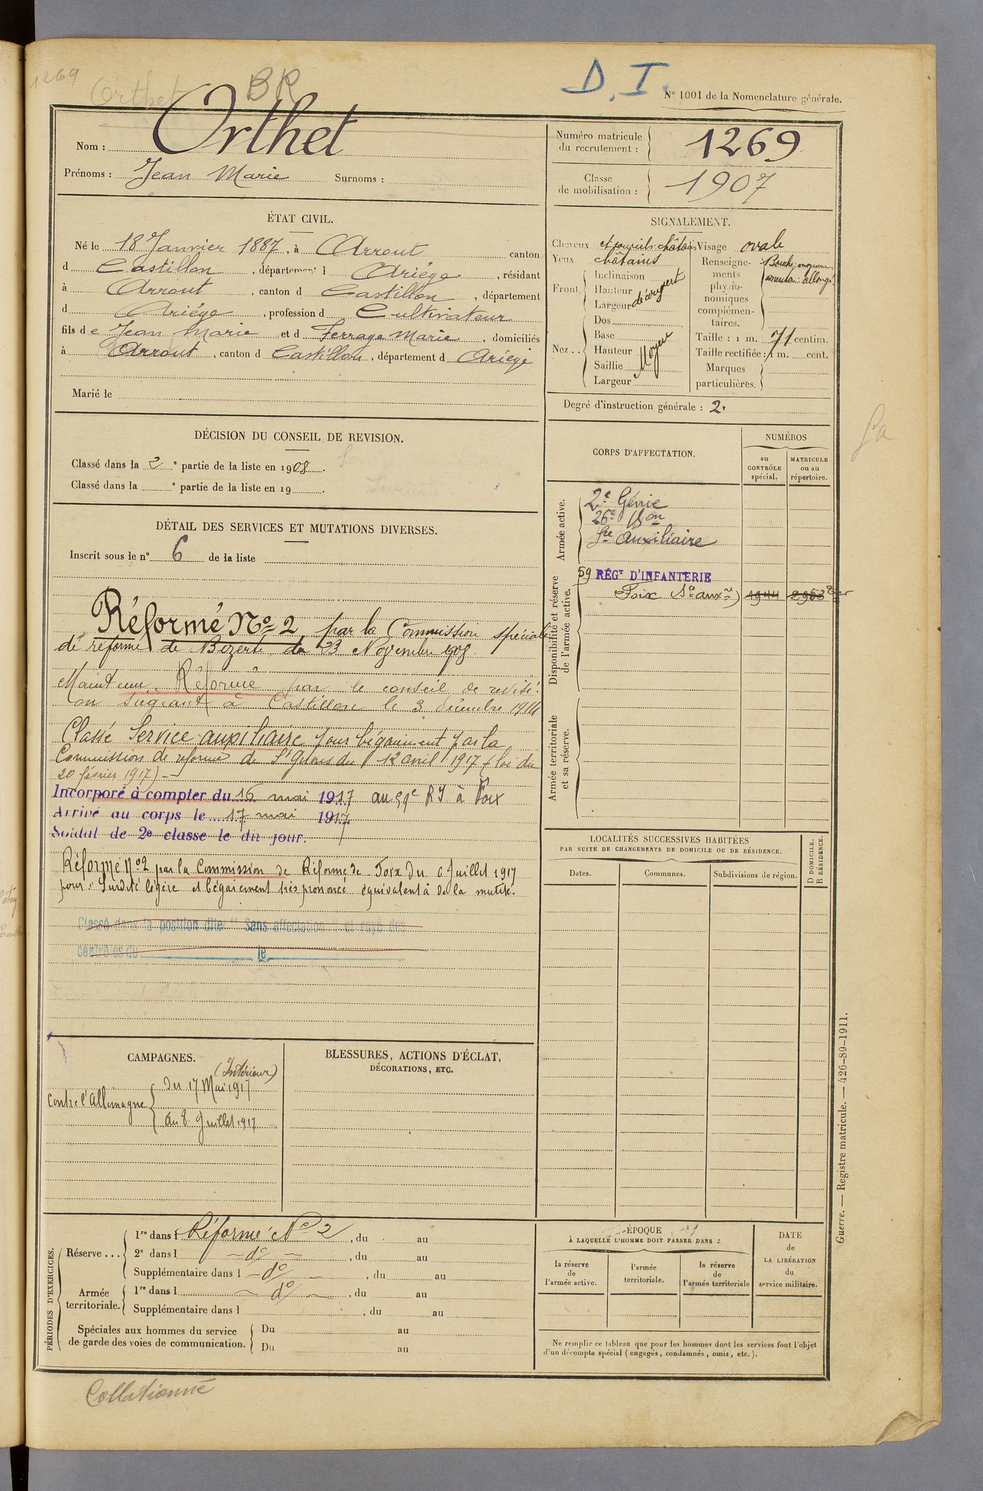 1269
Orthet
BR
D. I.
N° 1001 de la Nomenclature générale.
Nom : Orthet
Prénoms : Jean Marie Surnoms :
Numéro matricule du recrutement : 1269
Classe de mobilisation : 1907
ÉTAT CIVIL.
Né le 18 Janvier 1887, à Arrout, canton
d Castillon, département d Ariége, résidant
à Arrout, canton d Castillon, département
d Ariége, profession d Cultivateur
fils de Jean Marie et d Ferrage Marie, domiciliés
à Arrout, canton d Castillon, département d Ariége
Marié le
SIGNALEMENT.
Cheveux et sourcils châtains Visage ovale
Yeux châtains
Front Inclinaison
Hauteur
Largeur découvert
Nez Dos
Base
Hauteur Moyen
Saillie
Largeur
Renseignements physionomiques complémentaires. Bouche moyenne menton allongé
Taille : 1 m. 71 centim.
Taille rectifiée : 1 m. cent.
Marques particulières.
Degré d'instruction générale : 2.
DÉCISION DU CONSEIL DE REVISION.
Classé dans la 2e partie de la liste en 1908.
Classé dans la e partie de la liste en 19
CORPS D'AFFECTATION.
NUMÉROS
au CONTRÔLE spécial.
MATRICULE ou au répertoire.
Armée active.
2e Génie
26e Bon
Sre Auxiliaire
Disponibilité et réserve de l'armée active.
59 RÉGT D'INFANTERIE
Foix 1944
Armée territoriale et sa réserve.
DÉTAIL DES SERVICES ET MUTATIONS DIVERSES.
Inscrit sous le n° 6 de la liste
Réformé No 2 par la Commission spéciale
de réforme de Bizerte du 23 Novembre 1908
Maintenu Réformé par le conseil de révisi-
on siégeant à Castillon le 3 décembre 1914
Classé Service auxiliaire pour bégaiement par la
Commission de réforme de St Girons du 12 avril 1917 (loi du
20 février 1917)
Incorporé à compter du 16 mai 1917 au 59e RI à Foix
Arrivé au corps le 17 mai 1917
Soldat de 2e classe le du jour.
Réformé n°2 par la Commission de Réforme de Foix du 6 Juillet 1917
pour : Surdité légère et bégaiement très prononcé équivalent à de la mutité.
Classé dans la position dite " Sans affectation " et rayé des
contrôles du le
LOCALITÉS SUCCESSIVES HABITÉES
PAR SUITE DE CHANGEMENTS DE DOMICILE OU DE RÉSIDENCE.
Dates. Communes. Subdivisions de région. D DOMICILE. R RÉSIDENCE.
CAMPAGNES.
(Intérieur)
Contre l'Allemagne du 17 Mai 1917
au 8 Juillet 1917
BLESSURES, ACTIONS D'ÉCLAT,
DÉCORATIONS, ETC.
PÉRIODES D'EXERCICES.
Réserve... 1re dans l Réformé No 2, du au
2e dans l do, du au
Supplémentaire dans l do, du au
Armée territoriale. 1re dans l do, du au
Supplémentaire dans l, du au
Spéciales aux hommes du service de garde des voies de communication. Du au
Du au
ÉPOQUE
À LAQUELLE L'HOMME DOIT PASSER DANS :
la réserve de l'armée active.
l'armée territoriale.
la réserve de l'armée territoriale
DATE de LA LIBÉRATION du service militaire.
Ne remplir ce tableau que pour les hommes dont les services font l'objet
d'un décompte spécial (engagés, condamnés, omis, etc.).
Guerre. — Registre matricule. — 426-89-1911.
Collationné